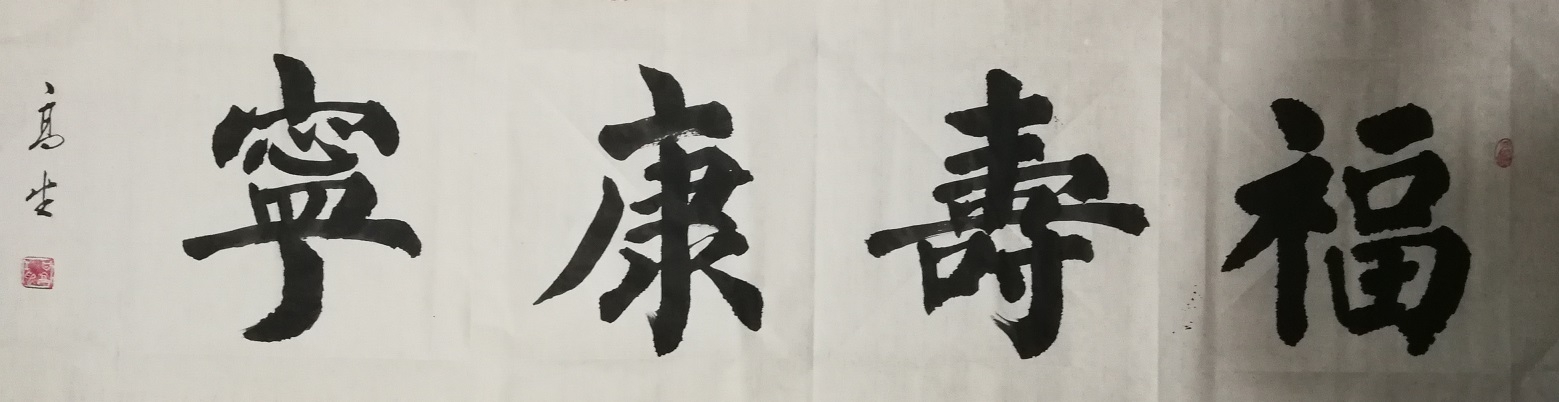 福壽康寧
高生